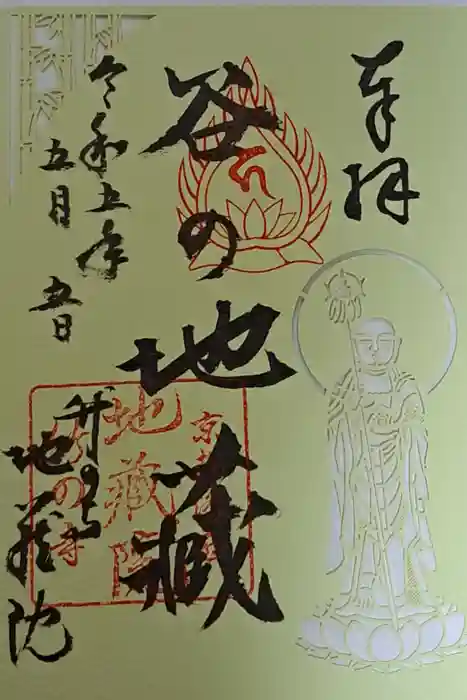 奉拝
谷の地蔵
令和五年
五月五日
竹の寺
地蔵院
京都
地蔵院
竹の寺